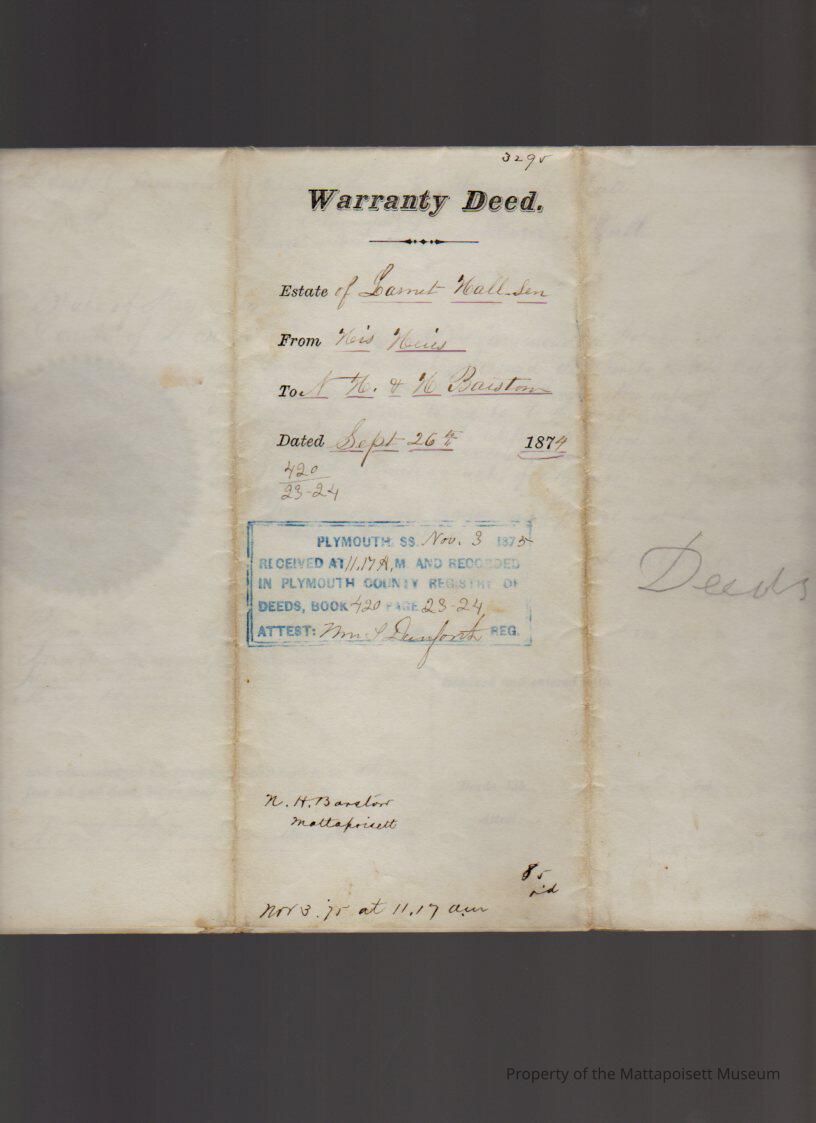 3295
Warranty Deed.
Estate of Larnet Hall Sen
From His Heirs
To N H. & H Barstow
Dated Sept 26th 1874
420
23-24
PLYMOUTH, SS. Nov. 3 1875
RECEIVED AT 11.17 A, M. AND RECORDED
IN PLYMOUTH COUNTY REGISTRY OF
DEEDS, BOOK 420 PAGE 23-24
ATTEST: Wm S Danforth REG.
Deeds
N. H. Barstow
Mattapoisett
85
Nov 3. 75 at 11.17 am
Property of the Mattapoisett Museum